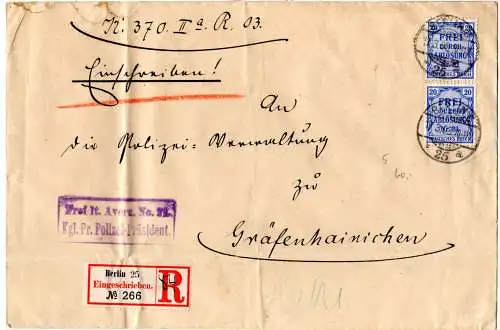 K. 370. IIa. R. 03.
Einschreiben!
An
die Polizei-Verwaltung
zu
Gräfenhainichen
Frei lt. Avers. No. 21.
Kgl. Pr. Polizei-Präsident.
Berlin 25
Eingeschrieben.
№ 266
R
20 20
FREI
DURCH
ABLÖSUNG
25
20 20
FREI
DURCH
ABLÖSUNG
25